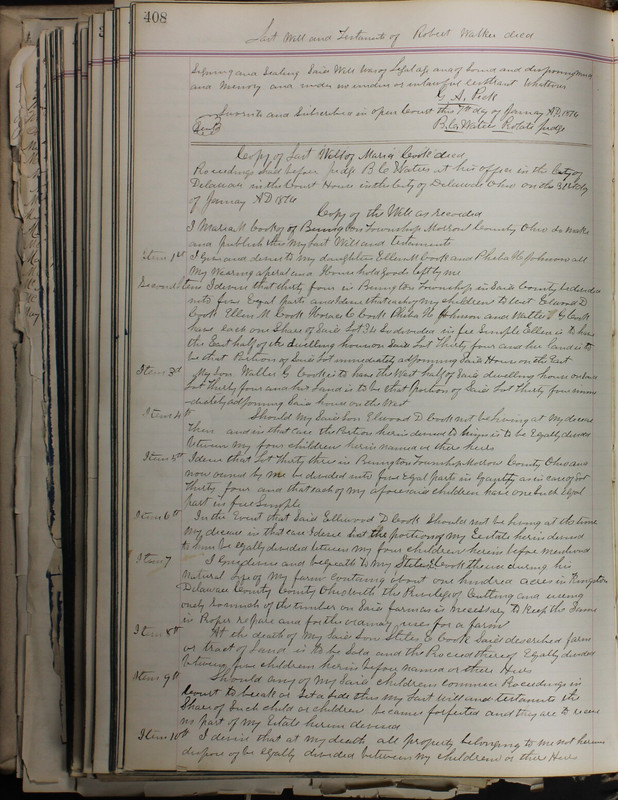 408
Last Will and Testament of Robert Walker decd
Signing and Sealing Said Will was of Legal age and of Sound and disposing mind
and Memory and under no undue or unlawful restraint Whatever
G. A. Peck
Sworn to and Subscribed in open Court this 7th day of January AD 1876
Seal
B. C. Waters Probate Judge
Copy of Last Will of Maria Cook decd
Proceedings had before Judge B C Waters at his office in the City of
Delaware in the Court House in the City of Delaware Ohio on the 31st day
of January AD 1876
Copy of the Will as recorded
I Maria Cook of Bennington Township Morrow County Ohio do make
and publish this my Last Will and testament
Item 1st I Give and devise to my daughters Ellen M Cook and Phebe H Johnson all
My Wearing aparal and House hold goods left by me
Second Item I devise that thirty four in Bennington Township in Said County be divided
into five Equal parts and I devise that each of my children to wit Elwood D
Cook Ellen M Cook Horace C Cook Phebe H Johnson and Walter G Cook
have each one Share of Said Lot 34 So devided in fee Simple Ellen is to have
the East half of the dwelling house on Said Lot Thirty four and her land is to
be that Portion of Said Lot immediately adjoining Said House on the East
Item 3d My Son Walter G Cook is to have the West half of Said dwelling house on Said
Lot Thirty four and his Land is to be that Portion of Said Lot Thirty four imme
-diately adjoining Said house on the West
Item 4th Should My Said Son Elwood D Cook not be living at my decease
then and in that case the Portion herein devised to him is to be Equally divided
between my four children herein named or their heirs
Item 5th I devise that Lot Thirty three in Bennington Township Morrow County Ohio and
now owned by me be divided into five Equal parts in quantity as in case of Lot
Thirty four and that each of my aforesaid children have one such Equal
part in fee Simple
Item 6th In the Event that Said Ellwood D Cook Should not be living at the time
my decease in that case I devise that the portion of my Estate herein devised
to him be equally divided between my four children herein before mentioned
Item 7 I Give devise and bequeath to my States C Cook the use during his
Natural Life of my farm containing about one hundred acres in Kingston
Delaware County Ohio with the Privilege of Cutting and using
only so much of the timber on Said farm as is necessary to keep the Same
in Proper repare and for the ordinary uses for a farm
Item 8th At the death of my Said Son States C Cook Said described farm
or tract of Land is to be Sold and the Proceed thereof Equally divided
between five children herein before named or their Heirs
Item 9th Should any of my Said children commence Proceedings in
Court to break or Set a Side this my Last will and testament the
Share of Such child or children becomes forfeited and they are to receive
no part of my Estate herein devised
Item 10th I devise that at my death all property belonging to me not herein
disposed of be Equally divided between my children or their Heirs